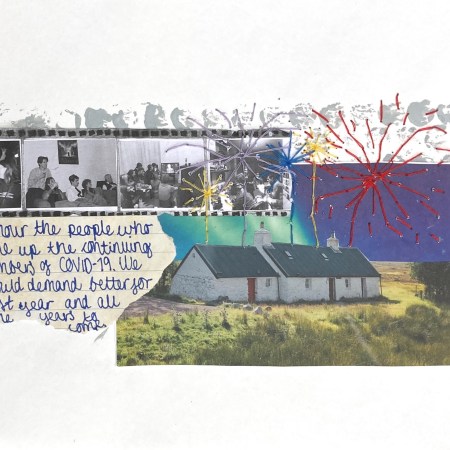 nour the people who
ke up the continuing
mbers of COVID-19. We
ould demand better for
st year and all
he years to
come.